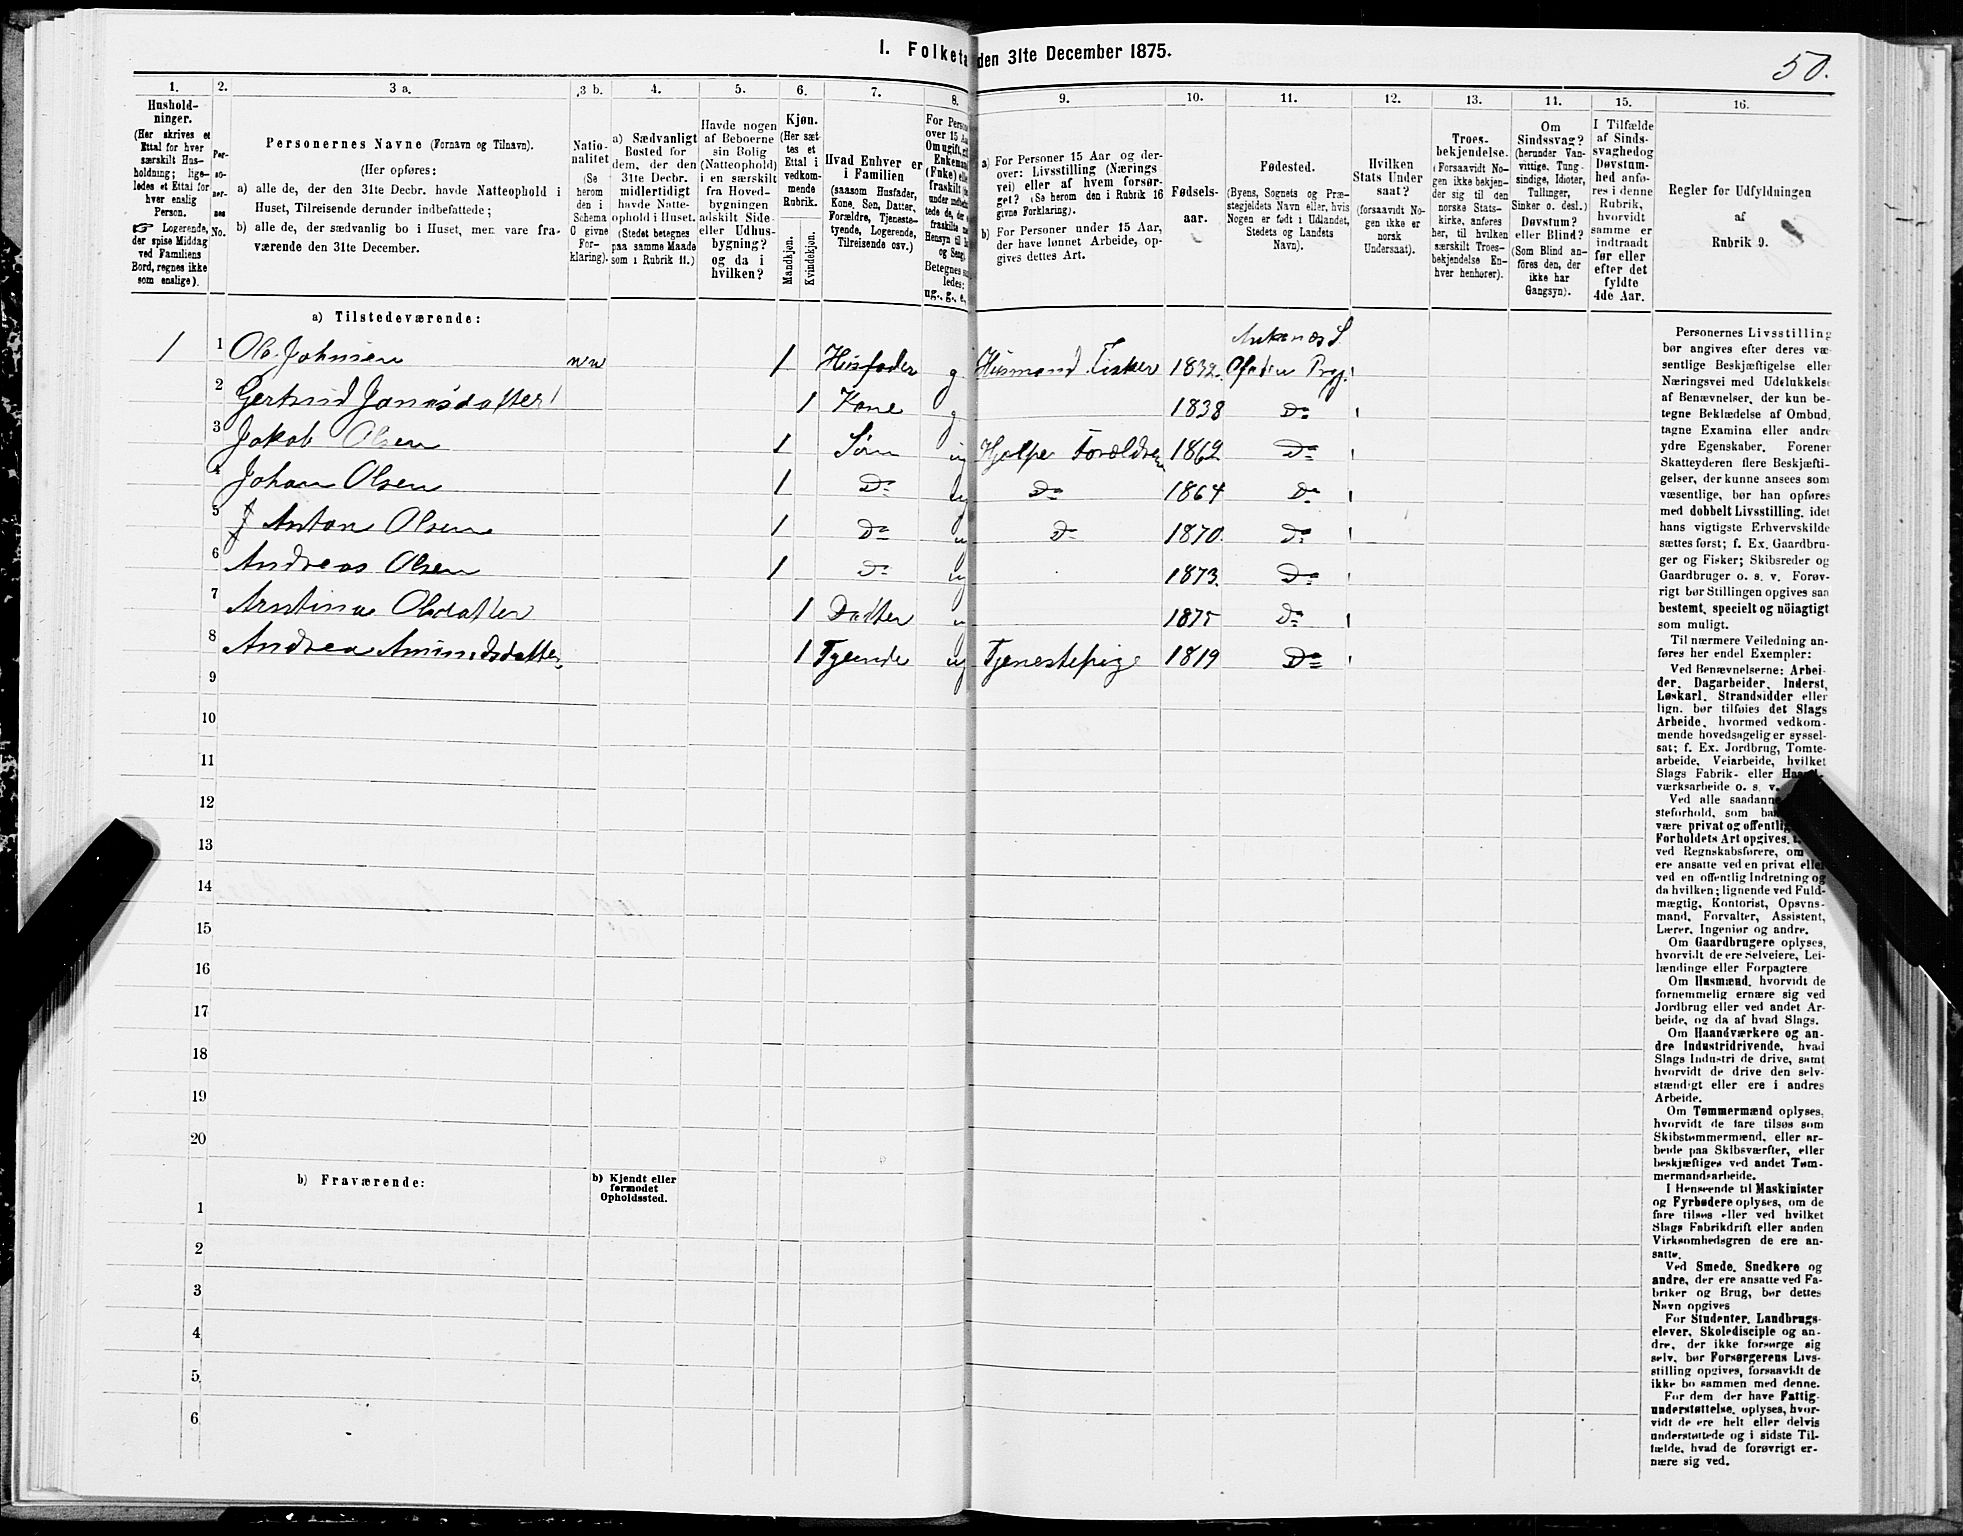 I. Folketa
den 31te December 1875.
50.
1.
Hushold-
ninger.
(Her skrives et
Ettal for hver
særskilt Hus-
holdning; lige-
ledes et Ettal for
hver enslig
Person.
☞ Logerende,
der spise Middag
ved Familiens
Bord, regnes ikke
som enslige).
2.
Per-
so-
ner-
nes
No.
3 a.
Personernes Navne (Fornavn og Tilnavn).
(Her opføres:
a) alle de, der den 31te Decbr. havde Natteophold i
Huset, Tilreisende derunder indbefattede;
b) alle de, der sædvanlig bo i Huset, men vare fra-
værende den 31te December.
3 b.
Natio-
nalitet
(Se
herom
den i
Schema
C givne
For-
klaring).
4.
a) Sædvanligt
Bosted for
dem, der den
31te Decbr.
midlertidigt
havde Natte-
ophold i Huset.
(Stedet betegnes
paa samme Maade
som i Rubrik 11.)
5.
Havde nogen
af Beboerne
sin Bolig
(Natteophold)
i en særskilt
fra Hoved-
bygningen
adskilt Side-
eller Udhus-
bygning?
og da i
hvilken?
6.
Kjøn.
(Her sæt-
tes et
Ettal i
vedkom-
mende
Rubrik.
Mandkjøn.
Kvindekjøn.
7.
Hvad Enhver er
i Familien
(saasom Husfader,
Kone, Søn, Datter,
Forældre, Tjeneste-
tyende, Logerende,
Tilreisende osv.)
8.
For Perso
over 15 Aa
Om ugift, gif
Enkemand
(Enke) elle
fraskilt
under indbefat
tede de, der
fraskilte
Hensyn til
og Seng.
Betegnes
ledes:
ug., g., e.,
9.
a) For Personer 15 Aar og der-
over: Livsstilling (Nærings
vei) eller af hvem forsør-
get? (Se herom den i Rubrik 16
givne Forklaring).
b) For Personer under 15 Aar,
der have lønnet Arbeide, op-
gives dettes Art.
10.
Fødsels-
aar.
11.
Fødested.
(Byens, Sognets og Præ-
stegjeldets Navn eller, hvis
Nogen er født i Udlandet,
Stedets og Landets
Navn).
12.
Hvilken
Stats Under
saat?
(forsaavidt No-
gen ikke er
norsk
Undersaat).
13.
Troes-
bekjendelse.
(Forsaavidt No-
gen ikke bekjen-
der sig til den
norske Stats-
kirke, anføres
her, til hvilken
særskilt Troes-
bekjendelse En-
hver henhører).
14.
Om
Sindssvag?
(herunder Van-
vittige, Tung-
sindige, Idioter,
Tullinger,
Sinker o. desl.)
Døvstum?
eller Blind?
(Som Blind an-
føres den, der
ikke har
Gangsyn).
15.
I Tilfælde
af Sinds-
svaghed og
Døvstum-
hed anfø-
res i denne
Rubrik,
hvorvidt
samme er
indtraadt
før eller
efter det
fyldte
4de Aar.
16.
Regler for Udfyldningen
af
Rubrik 9.
a) Tilstedeværende:
Ankenæs S
1 1 Ole Johnsen nn 1 Husfader g Husmand Fisker 1832 Ofoden Prgj.
2 Gertrud Jonasdatter 1 Kone g 1838 Do
3 Jakob Olsen 1 Søn ug Hjælper Forældrene 1862 Do
4 Johan Olsen 1 Do ug Do 1864 Do
5 Anton Olsen 1 Do u Do 1870. Do
6 Andreas Olsen 1 Do ug 1873. Do
7 Arntina Olsdatter 1 Datter u 1875 Do
8 Andrea Amundsdatter 1 Tyende ug Tjenestepige 1819 Do
9
10
11
12
13
14
15
16
17
18
19
20
b) Fraværende:
b) Kjendt eller
formodet
Opholdssted.
1
2
3
4
5
6
Personernes Livsstilling
bør angives efter deres væ-
sentlige Beskjæftigelse eller
Næringsvei med Udelukkelse
af Benævnelser, der kun be-
tegne Beklædelse af Ombud,
tagne Examina eller andre
ydre Egenskaber. Forener
Skatteyderen flere Beskjæfti-
gelser, der kunne ansees som
væsentlige, bør han opføres
med dobbelt Livsstilling, idet
hans vigtigste Erhvervskilde
sættes først; f. Ex. Gaardbru-
ger og Fisker; Skibsreder og
Gaardbruger o. s. v. Forøv-
rigt bør Stillingen opgives saa
bestemt, specielt og nöiagtigt
som muligt.
Til nærmere Veiledning an-
føres her endel Exempler:
Ved Benævnelserne: Arbei-
der, Dagarbeider, Inderst,
Løskarl, Strandsidder eller
lign. bør tilføies det Slags
Arbeide, hvormed vedkom-
mende hovedsagelig er syssel-
sat; f. Ex. Jordbrug, Tomte-
arbeide, Veiarbeide, hvilket
Slags Fabrik- eller
værksarbeide o. s. v.
Ved alle saadanne
steforhold, som
være privat og offentlig
Forholdets Art opgives,
ved Regnskabsførere, om
ere ansatte ved en privat eller
ved en offentlig Indretning og
da hvilken; lignende ved Fuld-
mægtig, Kontorist, Opsyns-
mand, Forvalter, Assistent,
Lærer, Ingeniør og andre.
Om Gaardbrugere oplyses,
hvorvidt de ere Selveiere, Lei-
lændinge eller Forpagtere
Om Husmænd, hvorvidt de
fornemmelig ernære sig ved
Jordbrug eller ved andet Ar-
beide, og da af hvad Slags.
Om Haandværkere og an-
dre Industridrivende, hvad
Slags Industri de drive, samt
hvorvidt de drive den selv-
stændigt eller ere i andres
Arbeide.
Om Tømmermænd oplyses,
hvorvidt de fare tilsøs som
Skibstømmermænd, eller ar-
beide paa Skibsværfter, eller
beskjæftiges ved andet Tøm-
mermandsarbeide.
I Henseende til Maskinister
og Fyrbødere oplyses, om de
fare tilsøs eller ved hvilket
Slags Fabrikdrift eller anden
Virksomhedsgren de ere an-
satte.
Ved Smede, Snedkere og
andre, der ere ansatte ved Fa-
briker og Brug, bør dettes
Navn opgives
For Studenter, Landbrugs-
elever, Skoledisciple og an-
dre, der ikke forsørge sig
selv, bør Forsørgerens Livs-
stilling opgives, forsaavidt de
ikke bo sammen med denne.
For dem der have Fattig-
understøttelse, oplyses, hvor-
vidt de ere helt eller delvis
understøttede og i sidste Til-
fælde, hvad de forøvrigt er-
nære sig ved.